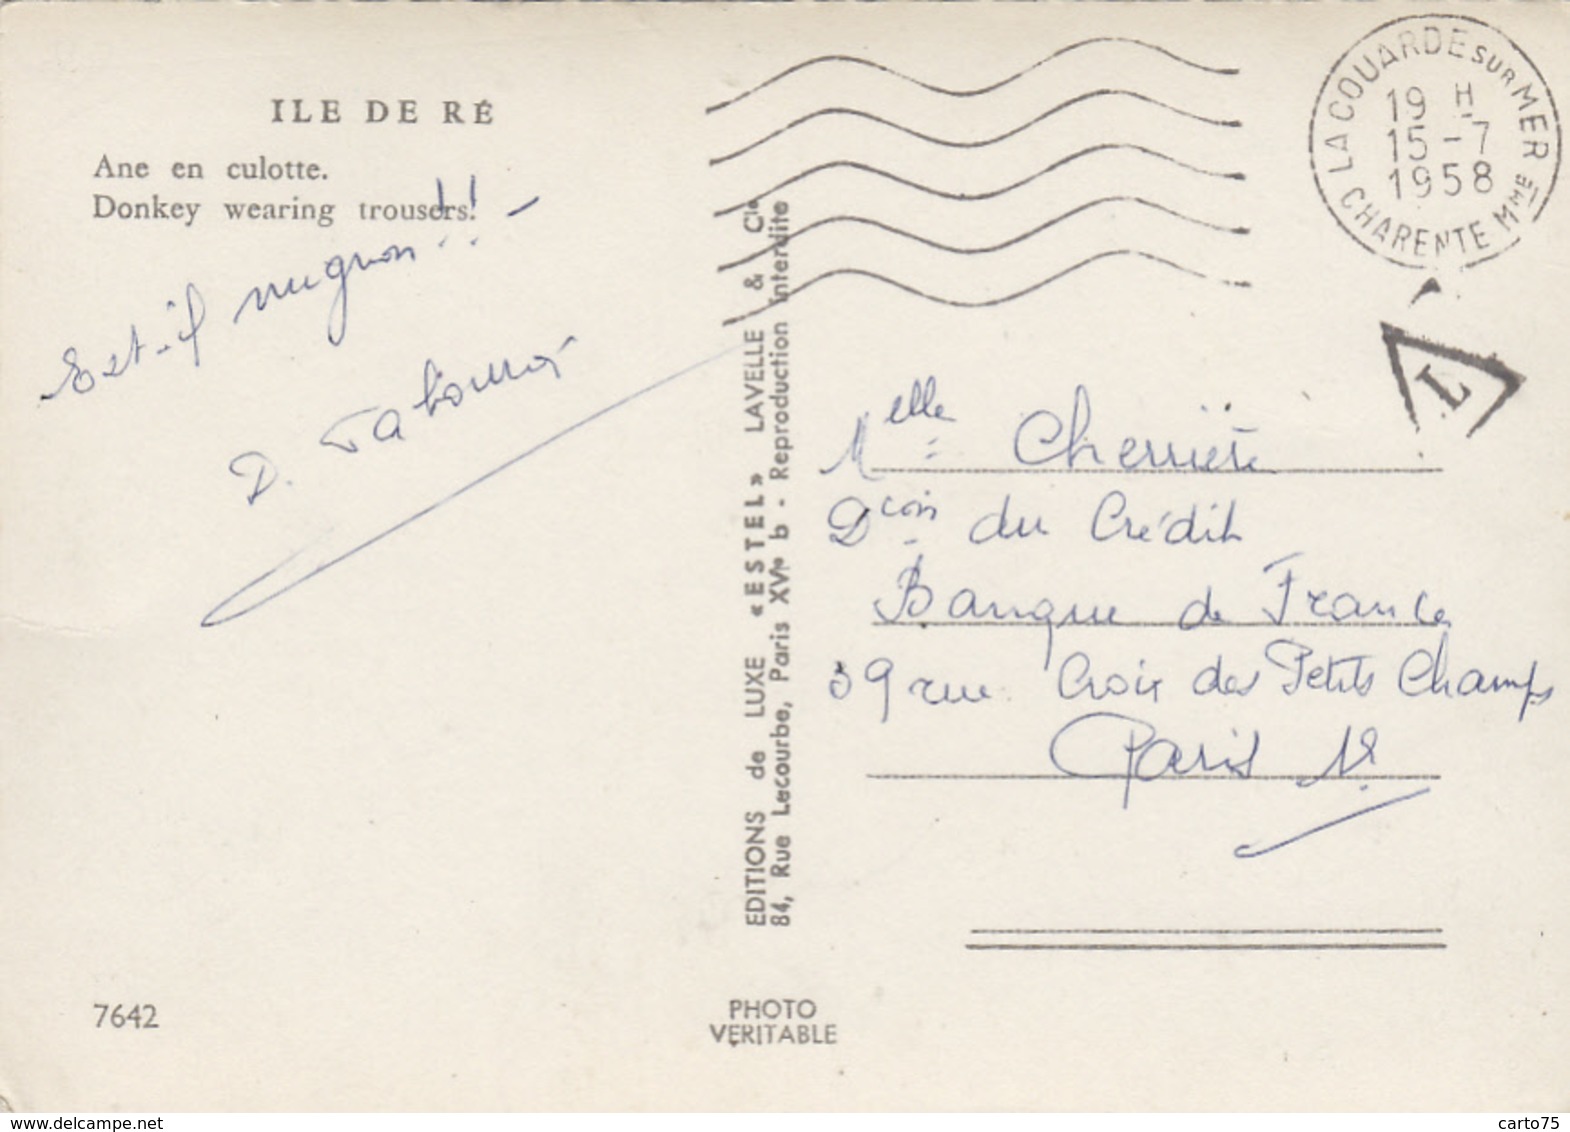 ILE DE RÉ
Ane en culotte.
Donkey wearing trousers!
Est-il mignon!! -
D.
EDITIONS de LUXE «ESTEL» LAVELLE & Cie
84, Rue Lecourbe, Paris XVe b - Reproduction Interdite
LA COUARDE SUR MER
19 H
15-7
1958
CHARENTE Mme
T
Melle Cherrière
Dion du Crédit
Banque de France
39 rue Croix des Petits Champs
Paris 1er
7642
PHOTO
VERITABLE
www.delcampe.net
carto75